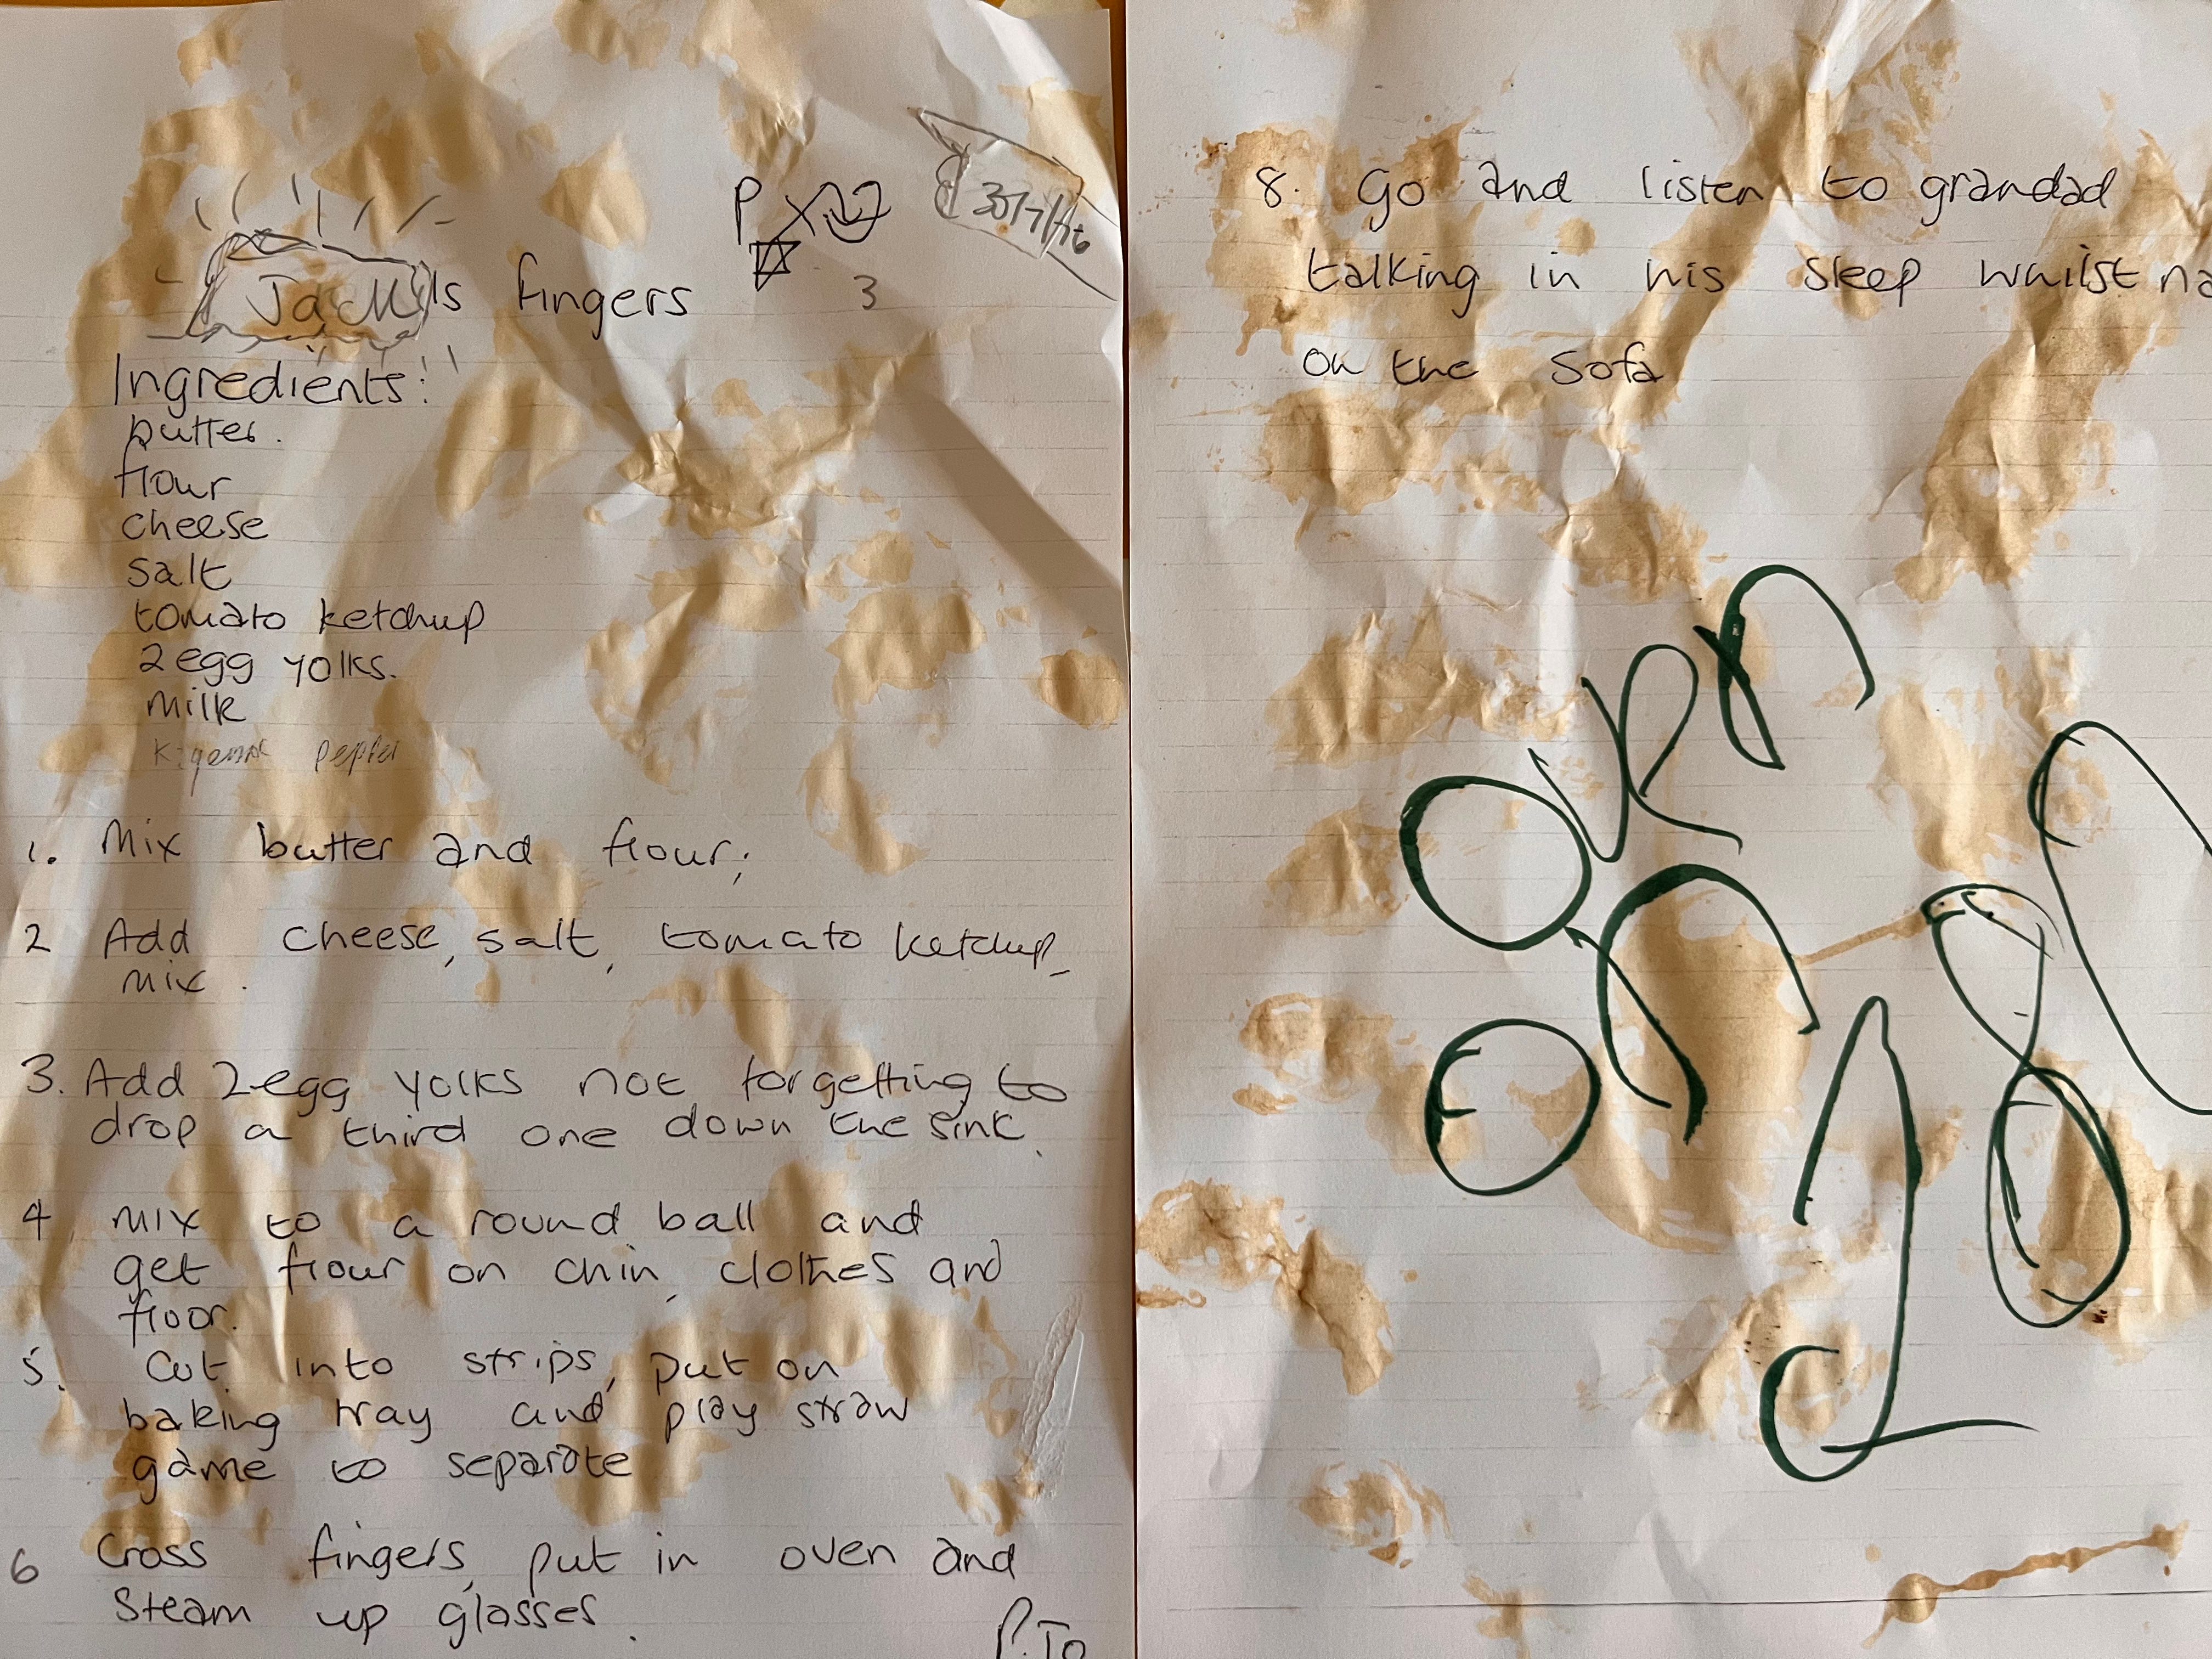 30/7/16
Jack's fingers
3
Ingredients:
butter.
flour
cheese
salt
tomato ketchup
2 egg yolks.
milk
pepper
1. Mix butter and flour,
2 Add cheese, salt, tomato ketchup,
mix.
3. Add 2 egg yolks not forgetting to
drop a third one down the sink.
4. Mix to a round ball and
get flour on chin, clothes and
floor.
5. Cut into strips, put on
baking tray and play straw
game to separate
6 Cross fingers, put in oven and
steam up glasses.
P.T.O
8. Go and listen to grandad
talking in his sleep whilst na
on the sofa
oven
on
180